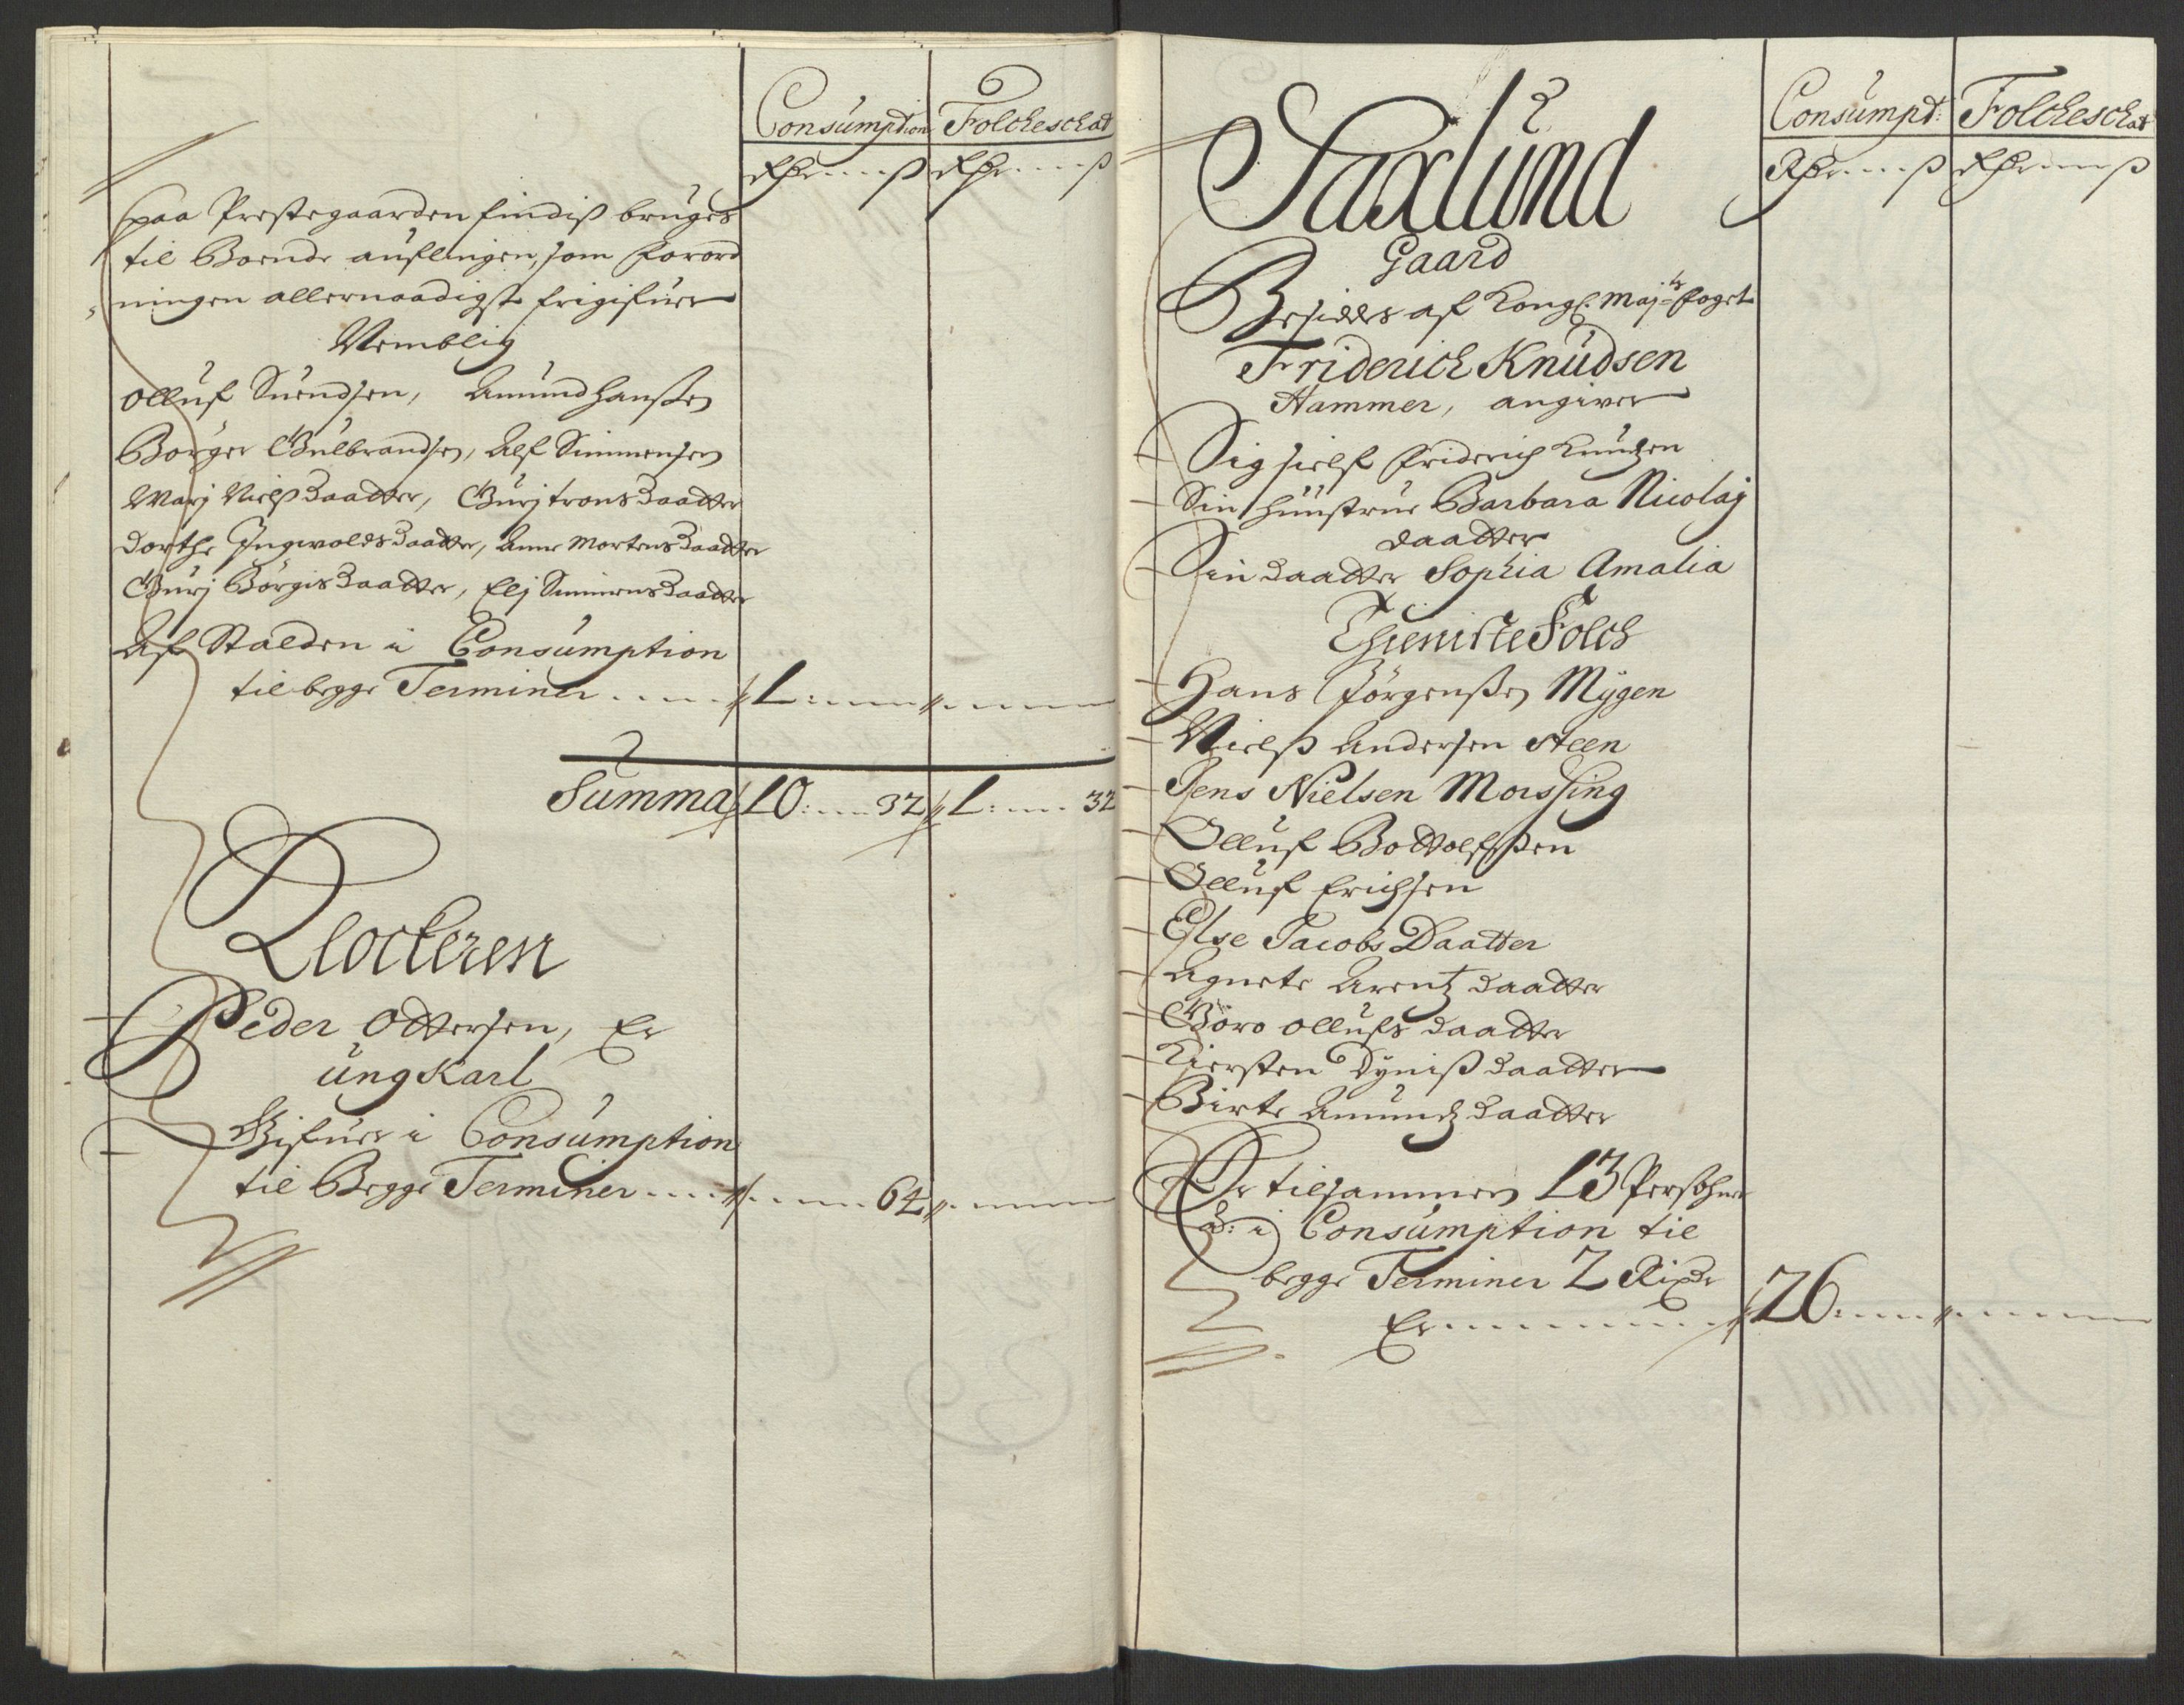 Consumption Folckeschat
Rdr ß Rdr ß
paa Prestegaarden findis bruges
til Boende auflingen, som forord
ningen allernaadigst frigifuer
Nemblig
Olluf Suendsen, Amund Hanßen
Borger Gulbrandsen, Alf Simmensen
Marj Nielßdaatter, Gurj tronsdaatter
Dorthe Ingwoldsdaatter, Anne Mortensdaatter
Gurj Børgisdaatter, Elj Simmensdaatter
Af Stalden i Consumption
til begge Terminer 1
Summa 10 32 1 32
Klockeren
Peder Ottersen, Er
ung Karl
Gifuer i Consumption
til Begge Terminer 64
Consumpt: Folckeschat
Rdr ß Rdr ß
Saxlund
Gaard
Besiddes af Kongl. Maj:ts foget
Friderich Knudsen
Hammer, angiver
Sig sielf Friderich Knudsen
Sin Hustrue Barbara Nicolaj
daatter
Sin daatter Sophia Amalia
Thieniste Folch
Hans Jørgenßen Mygen
Nielß Andersen Steen
Jens Nielsen Morsing
Olluf Bottolfßen
Olluf Erichsen
Else Jacobs Daatter
Agnete Arentz daatter
Gøro Ollufs daatter
Kiersten Dyniß daatter
Birte Amundz daatter
Er tilsammen 13 Persohner
a: i Consumption til
begge Terminer 2 Rixdr
Er 26